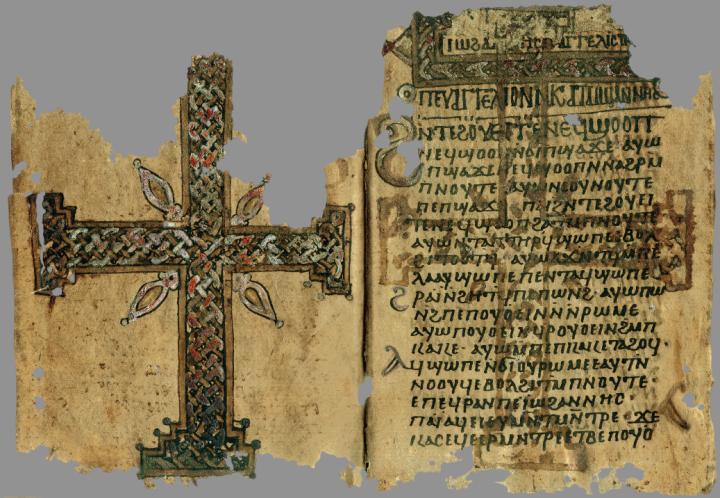 ⲓⲱϩⲁ ⲏⲥⲡⲉⲩⲁⲅⲅⲉⲗⲓⲥⲧ
ⲡⲉⲩⲁⲅⲅⲉⲗⲓⲟⲛⲛⲕⲁⲧⲁⲓⲱϩⲁⲛⲛⲏⲥ
ϩⲛⲧⲉϩⲟⲩⲉⲓⲧⲉⲛⲉϥϣⲟⲟⲡ
ⲛⲉϥϣⲟⲟⲡⲛϭⲓⲡϣⲁϫⲉ· ⲁⲩⲱ
ⲡϣⲁϫⲉ ⲛⲉϥϣⲟⲟⲡⲛⲛⲁϩⲣⲙ
ⲡⲛⲟⲩⲧⲉ· ⲁⲩⲱⲛⲉⲩⲛⲟⲩⲧⲉ
ⲡⲉⲡϣⲁϫⲉ· ⲡⲁⲓϩⲛⲧⲉϩⲟⲩⲉⲓ
ⲧⲉⲛⲉϥϣⲟⲟⲡϩⲁⲧⲙⲡⲛⲟⲩⲧⲉ
ⲁⲩⲱⲛⲧⲁⲡⲧⲏⲣϥϣⲱⲡⲉⲉⲃⲟⲗ
ϩⲓⲧⲟⲟⲧϥ· ⲁⲩⲱⲁϫⲛⲧϥⲙⲡⲉ
ⲗⲁⲁⲩϣⲱⲡⲉ ⲡⲉⲛⲧⲁϥϣⲱⲡⲉ
ϩⲣⲁⲓⲛϩⲏⲧϥⲡⲉⲡⲱⲛϩ· ⲁⲩⲱⲡⲱ
ⲛϩⲡⲉⲡⲟⲩⲟⲉⲓⲛⲛⲛⲣⲱⲙⲉ
ⲁⲩⲱⲡⲟⲩⲟⲉⲓⲛⲉϥⲣⲟⲩⲟⲉⲓⲛϩⲙⲡ
ⲕⲁⲕⲉ· ⲁⲩⲱⲙⲡⲉⲡⲕⲁⲕⲉⲧⲁϩⲟϥ·
ⲁϥϣⲱⲡⲉⲛϭⲓⲟⲩⲣⲱⲙⲉⲉⲁⲩⲧⲛ
ⲛⲟⲟⲩϥⲉⲃⲟⲗϩⲓⲧⲙⲡⲛⲟⲩⲧⲉ·
ⲉⲡⲉϥⲣⲁⲛⲡⲉⲓⲱϩⲁⲛⲛⲏⲥ·
ⲡⲁⲓⲁϥⲉⲓⲉⲩⲙⲛⲧⲙⲛⲧⲣⲉ· ϫⲉ
ⲕⲁⲥⲉϥⲉⲣⲙⲛⲧⲣⲉⲉⲧⲃⲉⲡⲟⲩⲟ